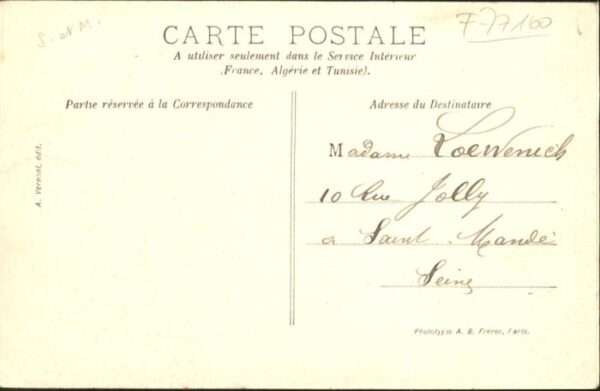 S. et M.
F-77160
CARTE POSTALE
A utiliser seulement dans le Service Intérieur
(France, Algérie et Tunisie).
Partie réservée à la Correspondance
Adresse du Destinataire
Madame Loewenich
10 Rue Jolly
a Saint Mandé
Seine
A. édit.
Phototypie A. B. Frères, Paris.